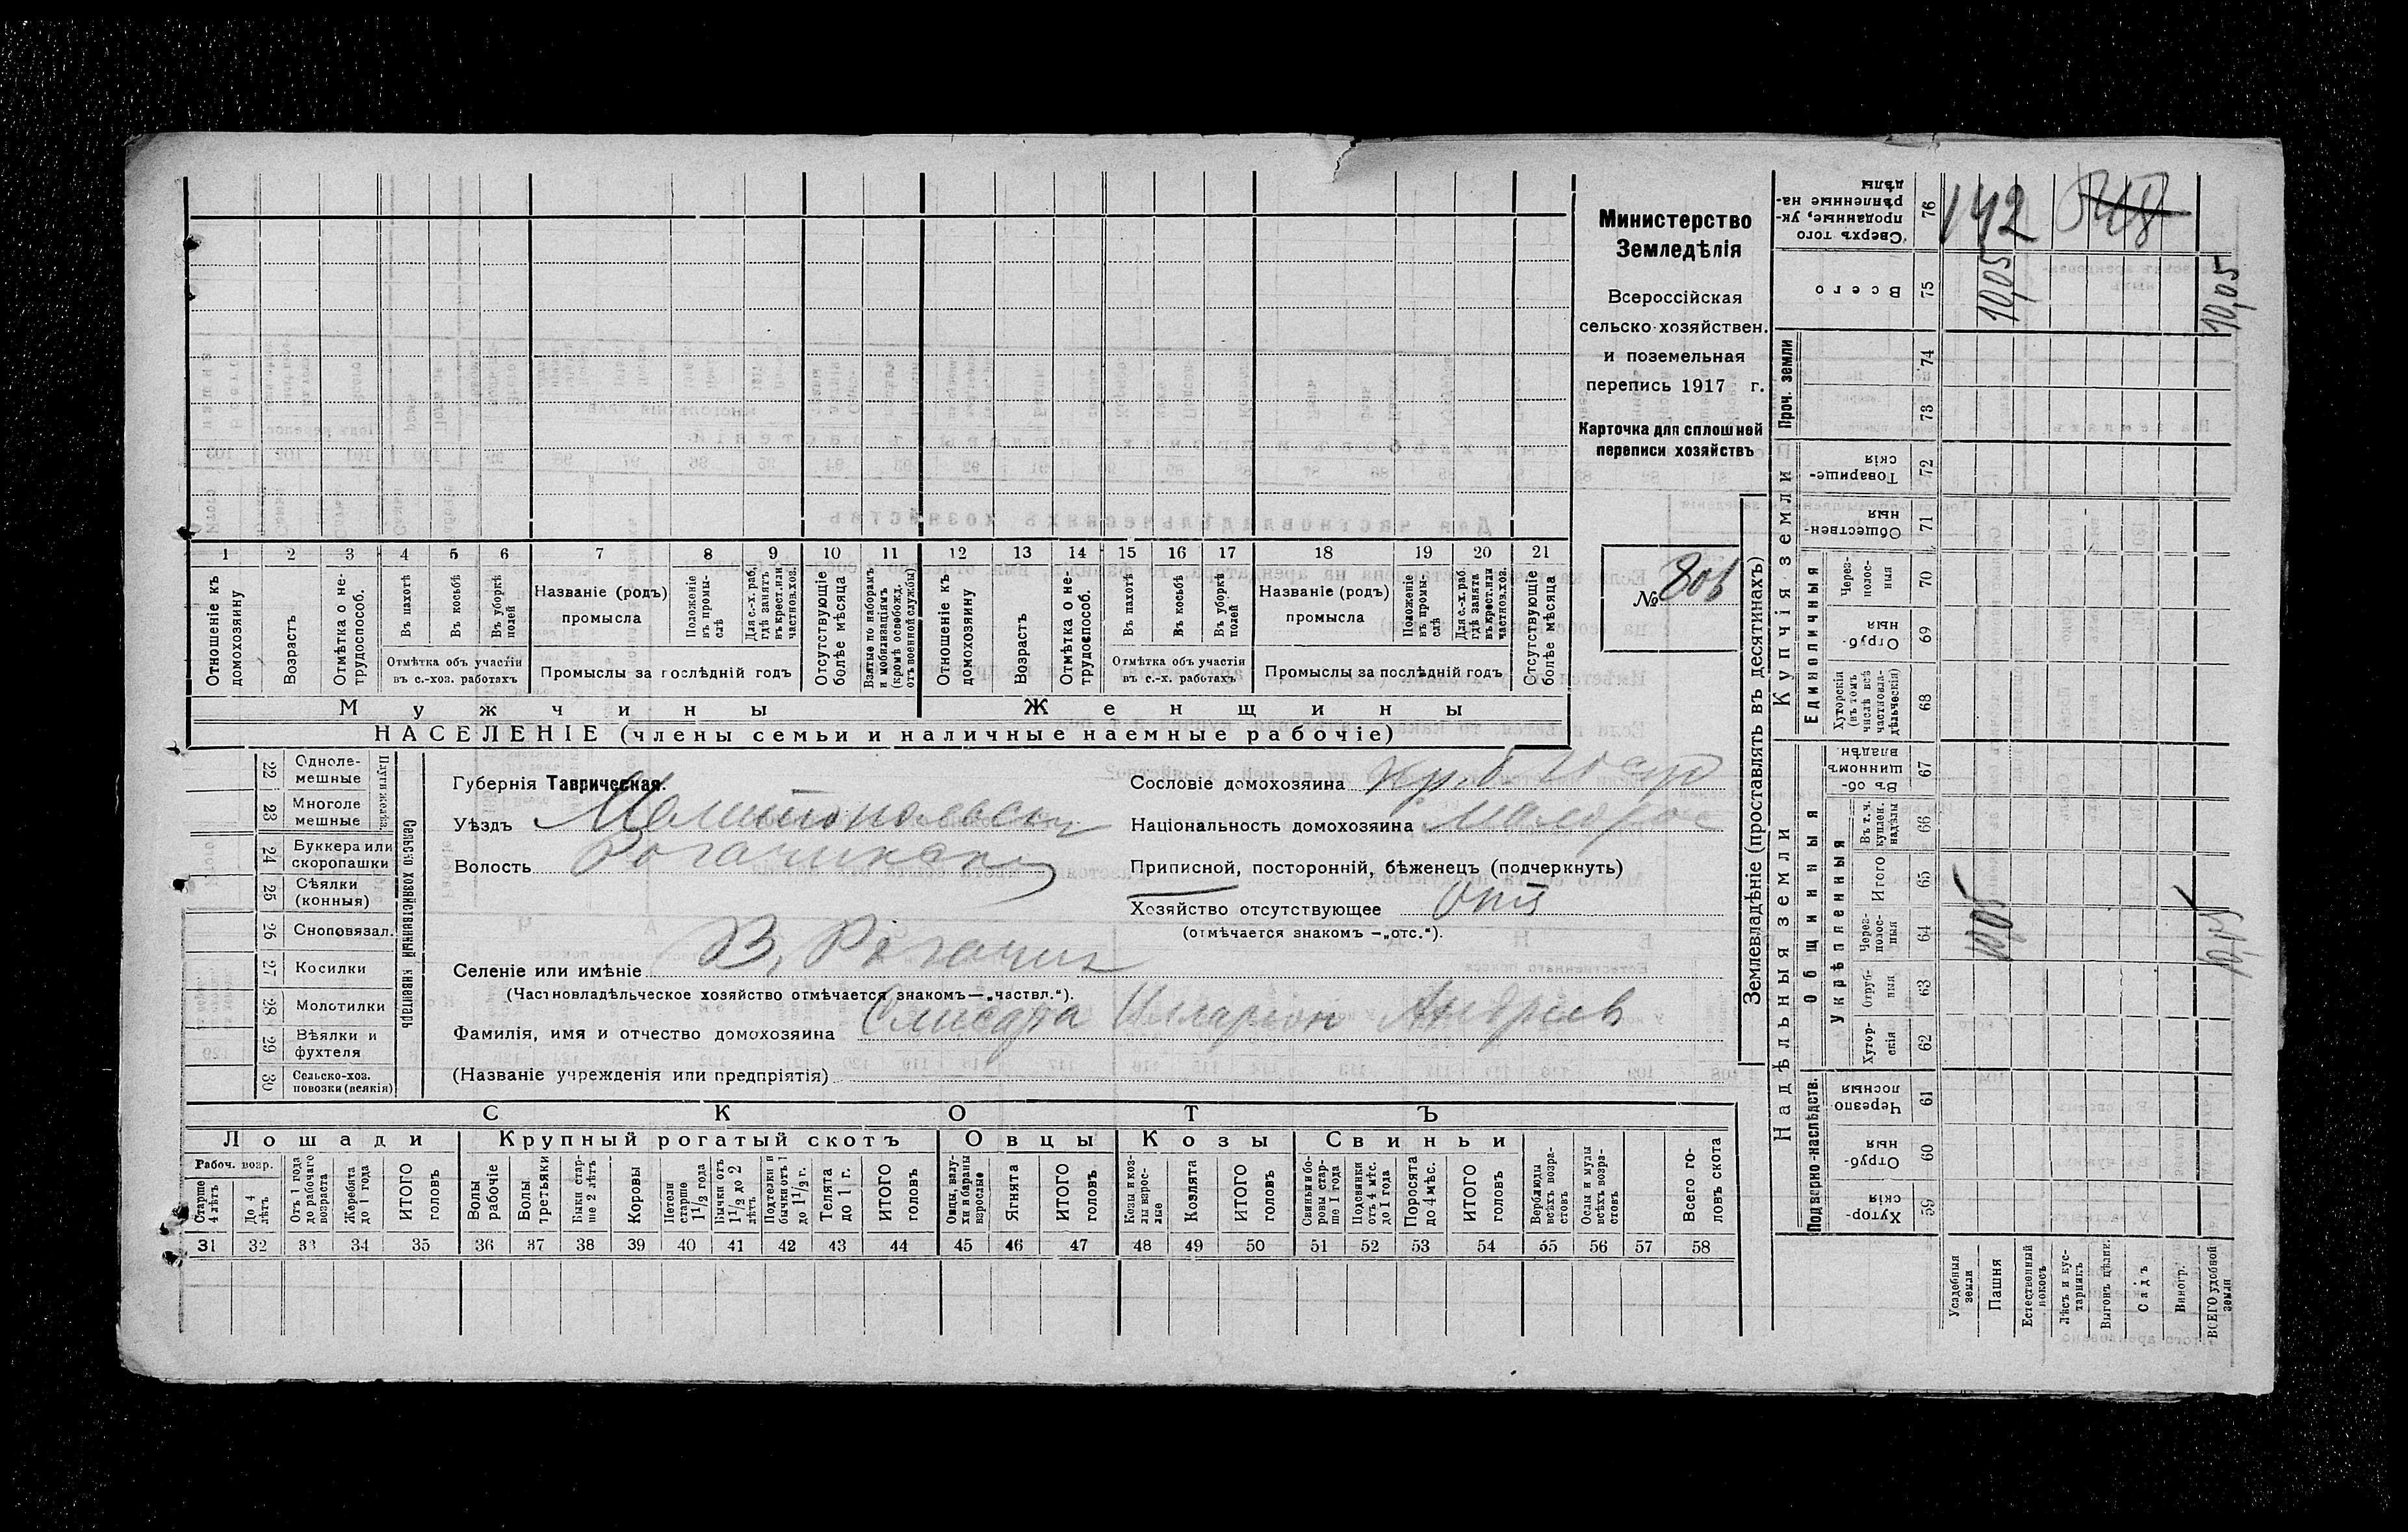 Министерство
Земледѣлія
Всероссійская
сельско-хозяйствен.
и поземельная
перепись 1917 г.
Карточка для сплошной
переписи хозяйствъ
№ 806
1 2 3 4 5 6 7 8 9 10 11 12 13 14 15 16 17 18 19 20 21
Отношеніе къ домохозяину
Возрастъ
Отмѣтка о не-трудоспособ.
Въ пахотѣ
Въ косьбѣ
Въ уборкѣ полей
Отмѣтка объ участіи
въ с.-хоз. работахъ
Названіе (родъ)
промысла
Положеніе въ промы-слѣ
Для с.-х. раб. гдѣ занятъ въ крест. или частнов. хоз.
Промыслы за послѣдній годъ
Отсутствующіе болѣе мѣсяца
Взятые по наборамъ и мобилизаціямъ (кромѣ освобожд. отъ военной службы)
Отношеніе къ домохозяину
Возрастъ
Отмѣтка о не-трудоспособ.
Въ пахотѣ
Въ косьбѣ
Въ уборкѣ полей
Отмѣтка объ участіи
въ с.-х. работахъ
Названіе (родъ)
промысла
Положеніе въ промы-слѣ
Для с.-х. раб. гдѣ занята въ крест. или частнов. хоз.
Промыслы за послѣдній годъ
Отсутствующіе болѣе мѣсяца
Мужчины Женщины
НАСЕЛЕНІЕ (члены семьи и наличные наемные рабочіе)
22 Одноле-мешные
23 Многоле мешные
Плуги желѣз.
24 Буккера или скоропашки
25 Сѣялки (конныя)
26 Сноповязал.
27 Косилки
28 Молотилки
29 Вѣялки и фухтеля
30 Сельско-хоз. повозки (всякія)
Сельско хозяйственный инвентарь
Губернія Таврическая.
Уѣздъ Мелитопольск
Волость Рогачикск
Селеніе или имѣніе В. Рогачик
(Частновладѣльческое хозяйство отмѣчается знакомъ—„частвл.“).
Фамилія, имя и отчество домохозяина Слисара Иларіон Андреев
(Названіе учрежденія или предпріятія)
Сословіе домохозяина Кр. б
Національность домохозяина малорос
Приписной, посторонній, бѣженецъ (подчеркнуть)
Хозяйство отсутствующее Отс
(отмѣчается знакомъ —„отс.“).
СКОТЪ
Лошади Крупный рогатый скотъ Овцы Козы Свиньи
Рабоч. возр.
Старше 4 лѣтъ
До 4 лѣтъ
Отъ 1 года до рабочаго возраста
Жеребята до 1 года
ИТОГО головъ
Волы рабочіе
Волы третьяки
Быки стар-ше 2 лѣтъ
Коровы
Нетели старше 1 1/2 года
Бычки отъ 1 1/2 до 2 лѣтъ
Подтелки и бычки отъ 1 до 1 1/2 г.
Телята до 1 г.
ИТОГО головъ
Овцы, валу-хи и бараны взрослые
Ягнята
ИТОГО головъ
Козы и коз-лы взрос-лые
Козлята
ИТОГО головъ
Свиньи и бо-ровы стар-ше 1 года
Подсвинки отъ 4 мѣс. до 1 года
Поросята до 4 мѣс.
ИТОГО головъ
Верблюды всѣхъ возра-стовъ
Ослы и мулы всѣхъ возра-стовъ
Всего го-ловъ скота
31 32 33 34 35 36 37 38 39 40 41 42 43 44 45 46 47 48 49 50 51 52 53 54 55 56 57 58
Землевладѣніе (проставлять въ десятинахъ)
Надѣльныя земли Купчія земли Проч. земли
Подворно-наслѣдств.
Общинныя
Укрѣпленныя
Единоличныя
Хутор-скія 59
Отруб-ныя 60
Черезпо лосныя 61
Хутор-скія 62
Отруб-ныя 63
Через-полос-ныя 64
Итого 65
Въ т. ч. куплен. надѣлы 66
Въ об-щинномъ владѣн. 67
Хуторскія (въ томъ числѣ всѣ частновла-дѣльческія) 68
Отруб-ныя 69
Через-полос-ныя 70
Обществен-ныя 71
Товарище-скія 72
73
74
Всего 75
Сверхъ того проданные, ук-рѣпленные на-дѣлы 76
Усадебныя земли
Пашня
Естественный покосъ
Лѣсъ и кус-тарникъ
Выгонъ цѣлин.
Садъ
Виногр.
ВСЕГО удобной земли
142
10,05
10,05
10,05
10,05